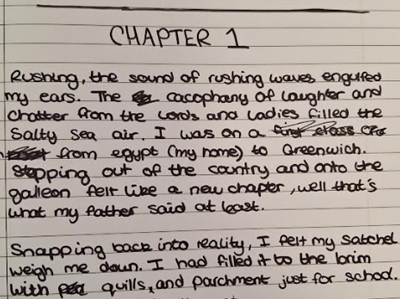 CHAPTER 1
Rushing, the sound of rushing waves engulfed
my ears. The cacophany of laughter and
Chatter from the Lords and Ladies filled the
Salty Sea air. I was on a first class
from egypt (my name) to Greenwich.
Stepping out of the country and onto the
galleon felt like a new chapter, well that's
what my father said at least.
Snapping back into reality, I felt my Satchel
weigh me down. I had filled it to the brim
with quills, and parchment just for school.